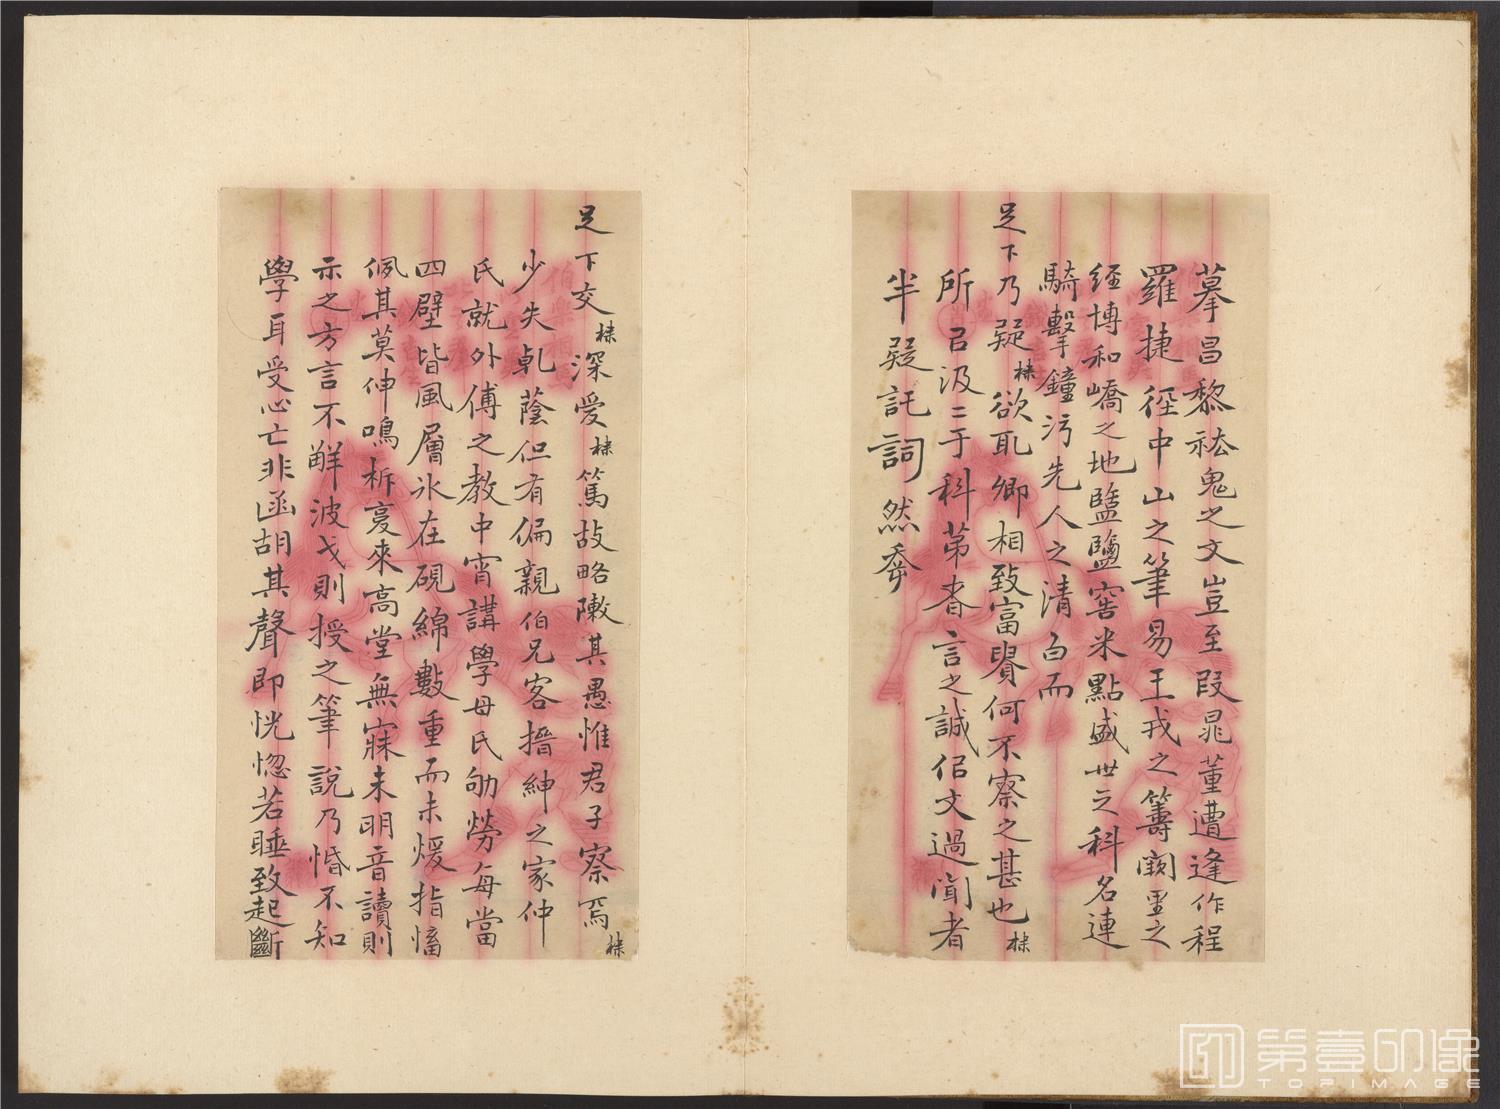 摹昌黎祛鬼之文豈至段晁董遭逢作程
羅捷徑中山之筆易王戎之籌闕里之
經博和嶠之地盬鹽窖米點盛世之科名連
騎擊鐘污先人之清白而
足下乃疑棅欲耴卿相致富貴何不察之甚也棅
所㠯汲二于科苐者言之誠佀文過聞者
半疑託詞然
足下交棅深愛棅篤故略陳其愚惟君子察焉棅
少失乹蔭但有偏親伯兄客搢紳之家仲
氏就外傅之教中宵講學母氏劬勞每當
四壁皆風層氷在硯綿數重而未煖指恆
佩其莫伸鳴柝戛來高堂無寐未明音讀則
示之方言不解波戈則授之筆說乃惛不知
學耳受心亡非函胡其聲即恍惚若睡致起斷
第壹印像
TOPIMAGE